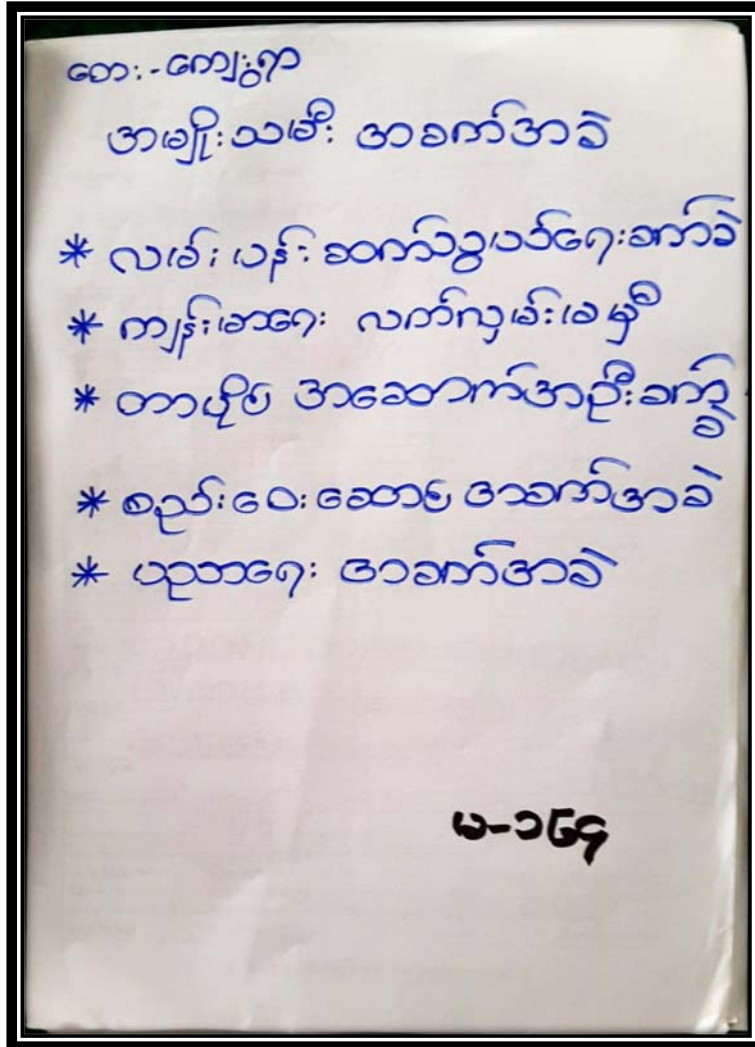 တေး-ကျေးရွာ
အမျိုးသမီး အခက်အခဲ
* လမ်းပန်း ဆက်သွယ်ရေးခက်ခဲ
* ကျန်းမာရေး လက်လှမ်းမမှီ
* တာဝိုင် အဆောက်အဦးခက်
ခဲ
* စည်းဝေးဆောင် အခက်အခဲ
* ပညာရေး အခက်အခဲ
မ-၁၆၄